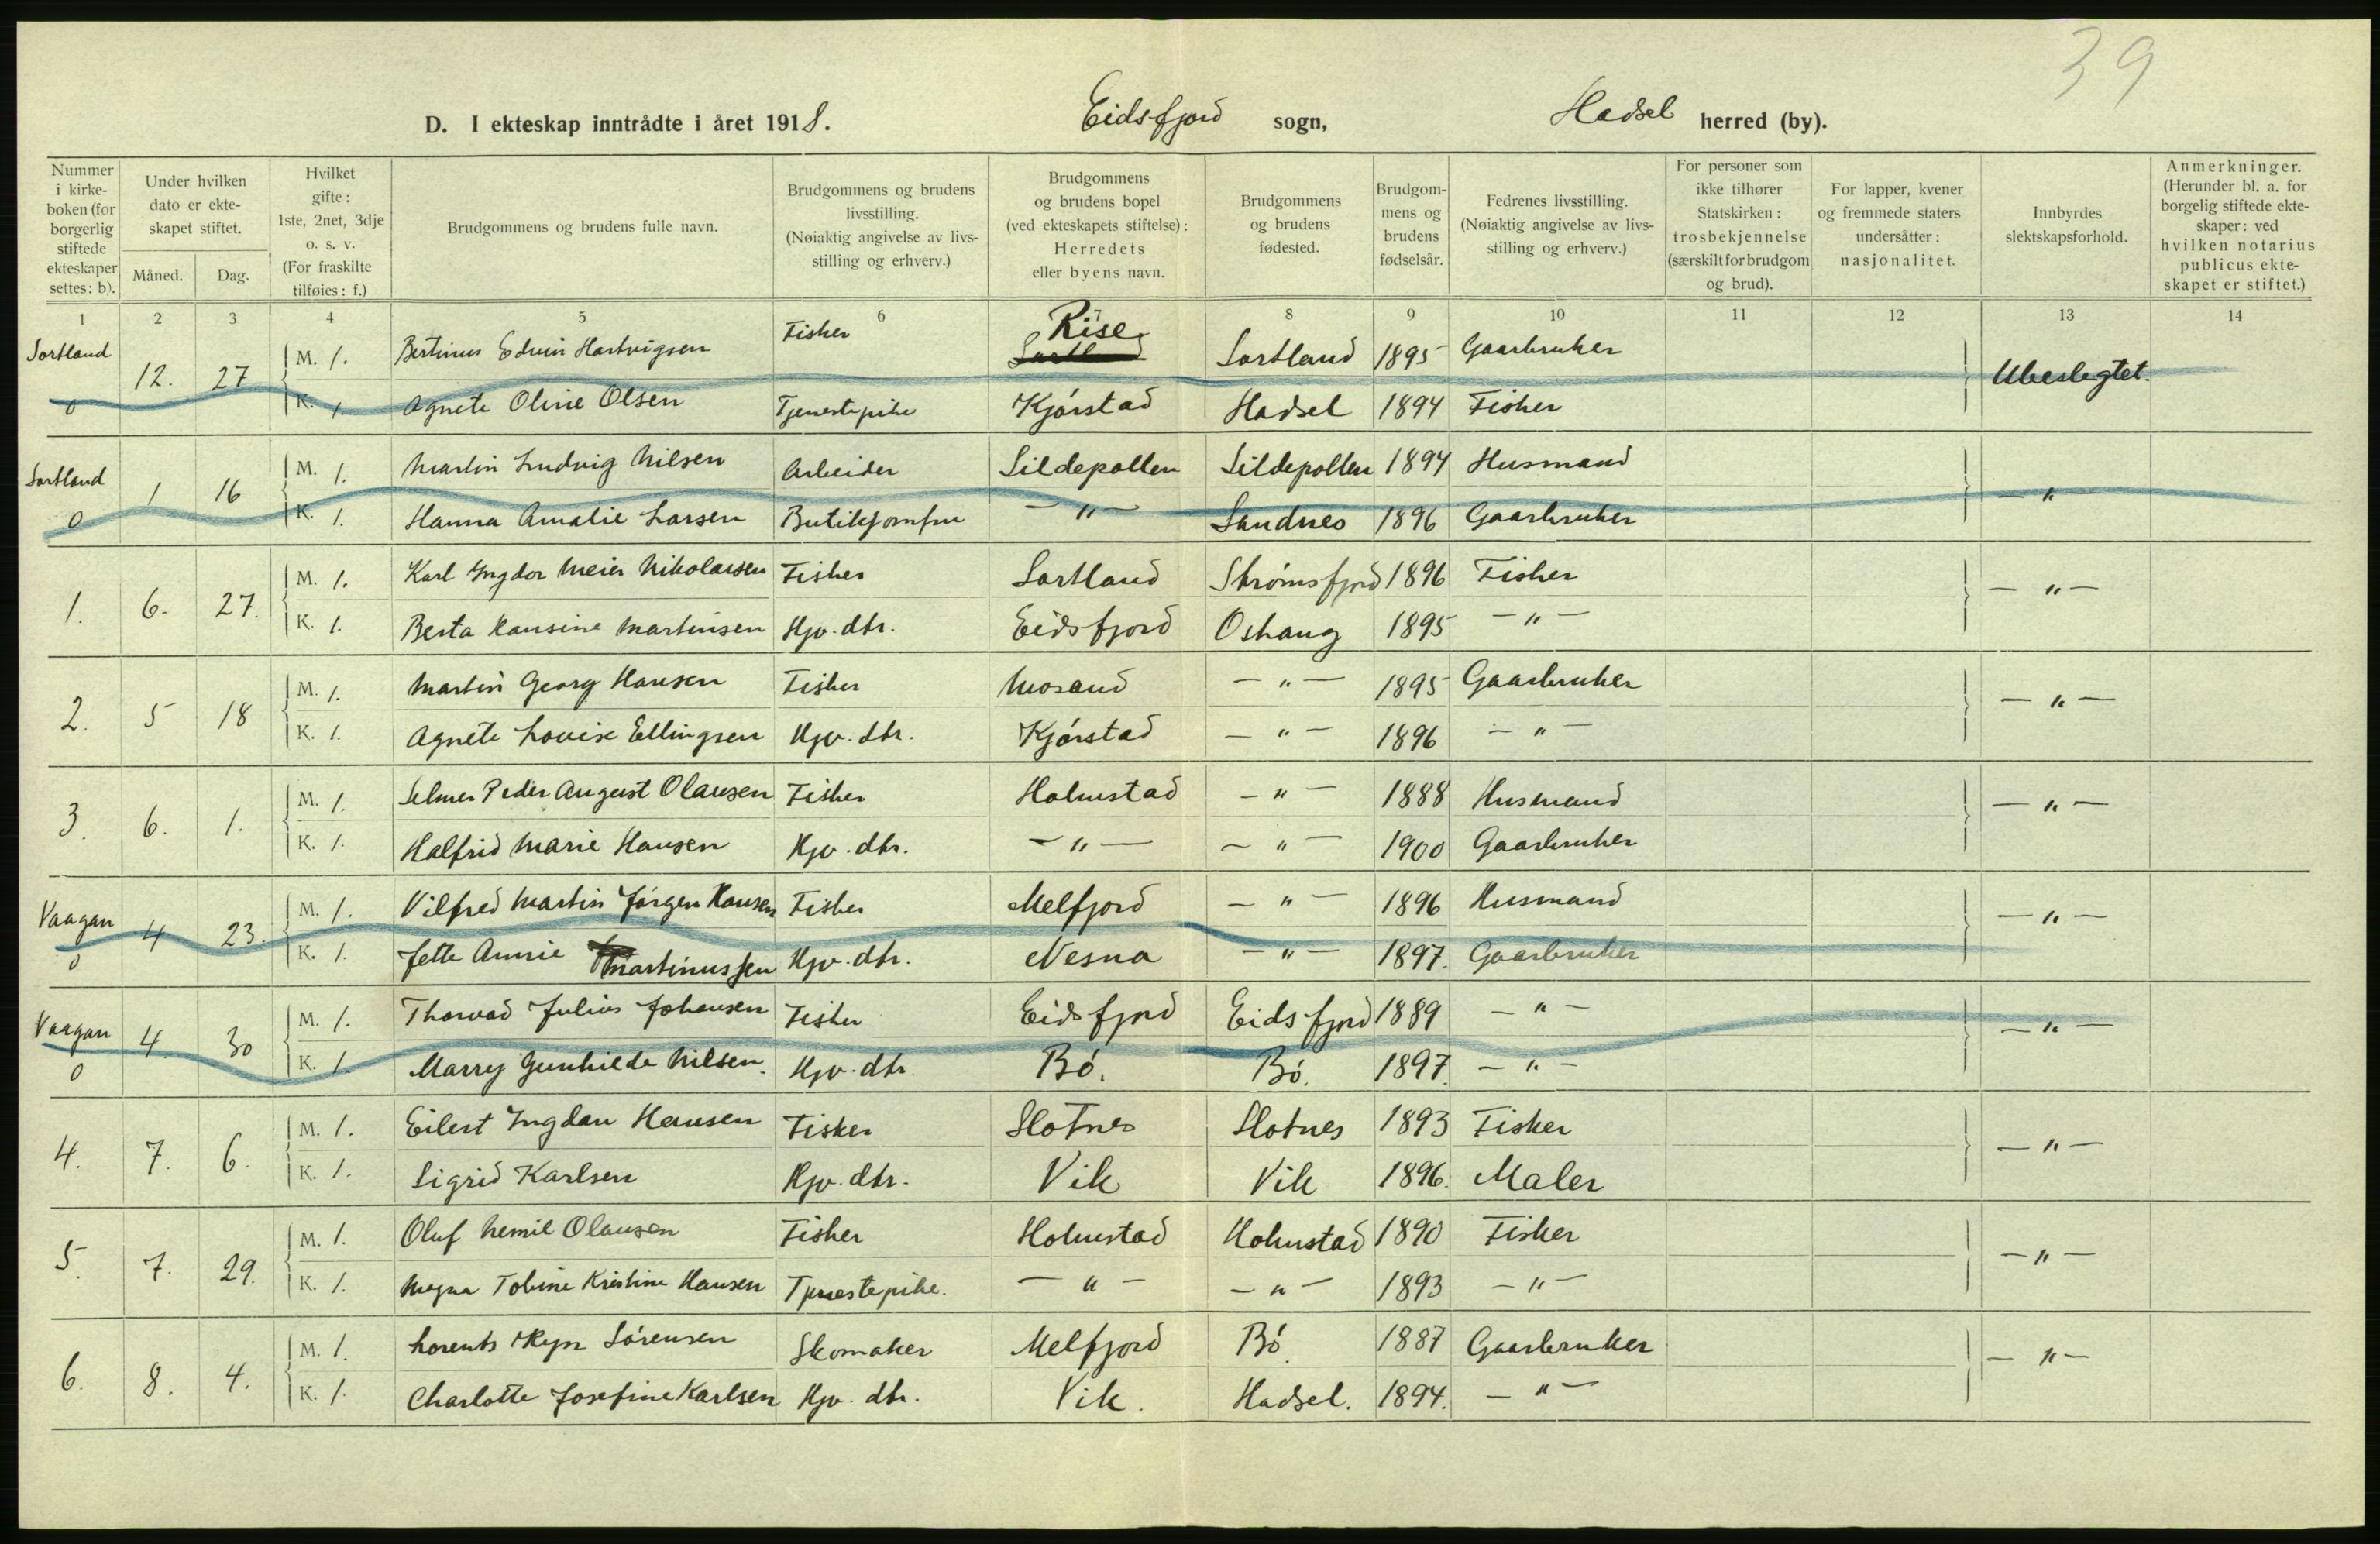 39
D. I ekteskap inntrådte i året 1918. Eidsfjord sogn, Hadsel herred (by).
Nummer i kirke- boken (for borgerlig stiftede ekteskaper settes: b).
Under hvilken dato er ekte- skapet stiftet.
Måned. Dag.
Hvilket gifte: 1ste, 2net, 3dje o. s. v. (For fraskilte tilføies: f.)
Brudgommens og brudens fulle navn.
Brudgommens og brudens livsstilling. (Nøiaktig angivelse av livs- stilling og erhverv.)
Brudgommens og brudens bopel (ved ekteskapets stiftelse): Herredets eller byens navn.
Brudgommens og brudens fødested.
Brudgom- mens og brudens fødselsår.
Fedrenes livsstilling. (Nøiaktig angivelse av livs- stilling og erhverv.)
For personer som ikke tilhører Statskirken: trosbekjennelse (særskilt for brudgom og brud).
For lapper, kvener og fremmede staters undersåtter: nasjonalitet.
Innbyrdes slektskapsforhold.
Anmerkninger. (Herunder bl. a. for borgelig stiftede ekte- skaper: ved hvilken notarius publicus ekte- skapet er stiftet.)
1 2 3 4 5 6 7 8 9 10 11 12 13 14
Sortland 12. 27 M. 1. Bertinus Edvin Hartvigsen Fisker Rise Sortland 1895 Gaarbruker Ubeslegtet.
0 K. 1. Agnete Oline Olsen Tjenestepike Kjørstad Hadsel 1894 Fisker
Sortland 1 16 M. 1. Martin Ludvig Nilsen Arbeider Sildepollen Sildepollen 1894 Husmand — " —
0 K. 1. Hanna Amalie Larsen Butikjomfru — " — Sandnes 1896 Gaarbruker
1. 6. 27. M. 1. Karl Ingdor Meier Nikolaisen Fisker Sortland Strømsfjord 1896 Fisker — " —
K. 1. Berta Hansine Martinsen Hjv. dtr. Eidsfjord Oshaug 1895 — " —
2. 5 18 M. 1. Martin Georg Hansen Fisker Mosand — " — 1895 Gaarbruker — " —
K. 1. Agnete Lovise Ellingsen Hjv. dtr. Kjørstad — " — 1896 — "
3. 6. 1. M. 1. Selmer Peder August Olausen Fisker Holmstad — " — 1888 Husmand — " —
K. 1. Halfrid Marie Hansen Hjv. dtr. — " — — " — 1900 Gaarbruker
Vaagan 4 23. M. 1. Vilfred Martin Jørgen Hansen Fisker Melfjord — " — 1896 Husmand — " —
0 K. 1. Jette Annie Martinussen Hjv. dtr. Nesna — " — 1897. Gaarbruker
Vaagan 4. 30 M. 1. Thorvad Julius Johansen Fisker Eidsfjord Eidsfjord 1889 — " — — " —
0 K. 1. Marry Gunhilde Nilsen. Hjv. dtr. Bø. Bø. 1897. — " —
4. 7. 6. M. 1. Eilert Ingdan Hansen Fisker Slotnes Slotnes 1893 Fisker — " —
K. 1. Sigrid Karlsen Hjv. dtr. Vik Vik 1896. Maler
5. 7. 29. M. 1. Oluf Hemil Olausen Fisker Holmstad Holmstad 1890 Fisker — " —
K. 1. Magna Tobine Kristine Hansen Tjenestepike. — " — — " — 1893 — " —
6. 8. 4. M. 1. Lorents Sørensen Skomaker Melfjord Bø. 1887 Gaarbruker — " —
K. 1. Charlotte Josefine Karlsen Hjv. dtr. Vik. Hadsel. 1894. — " —